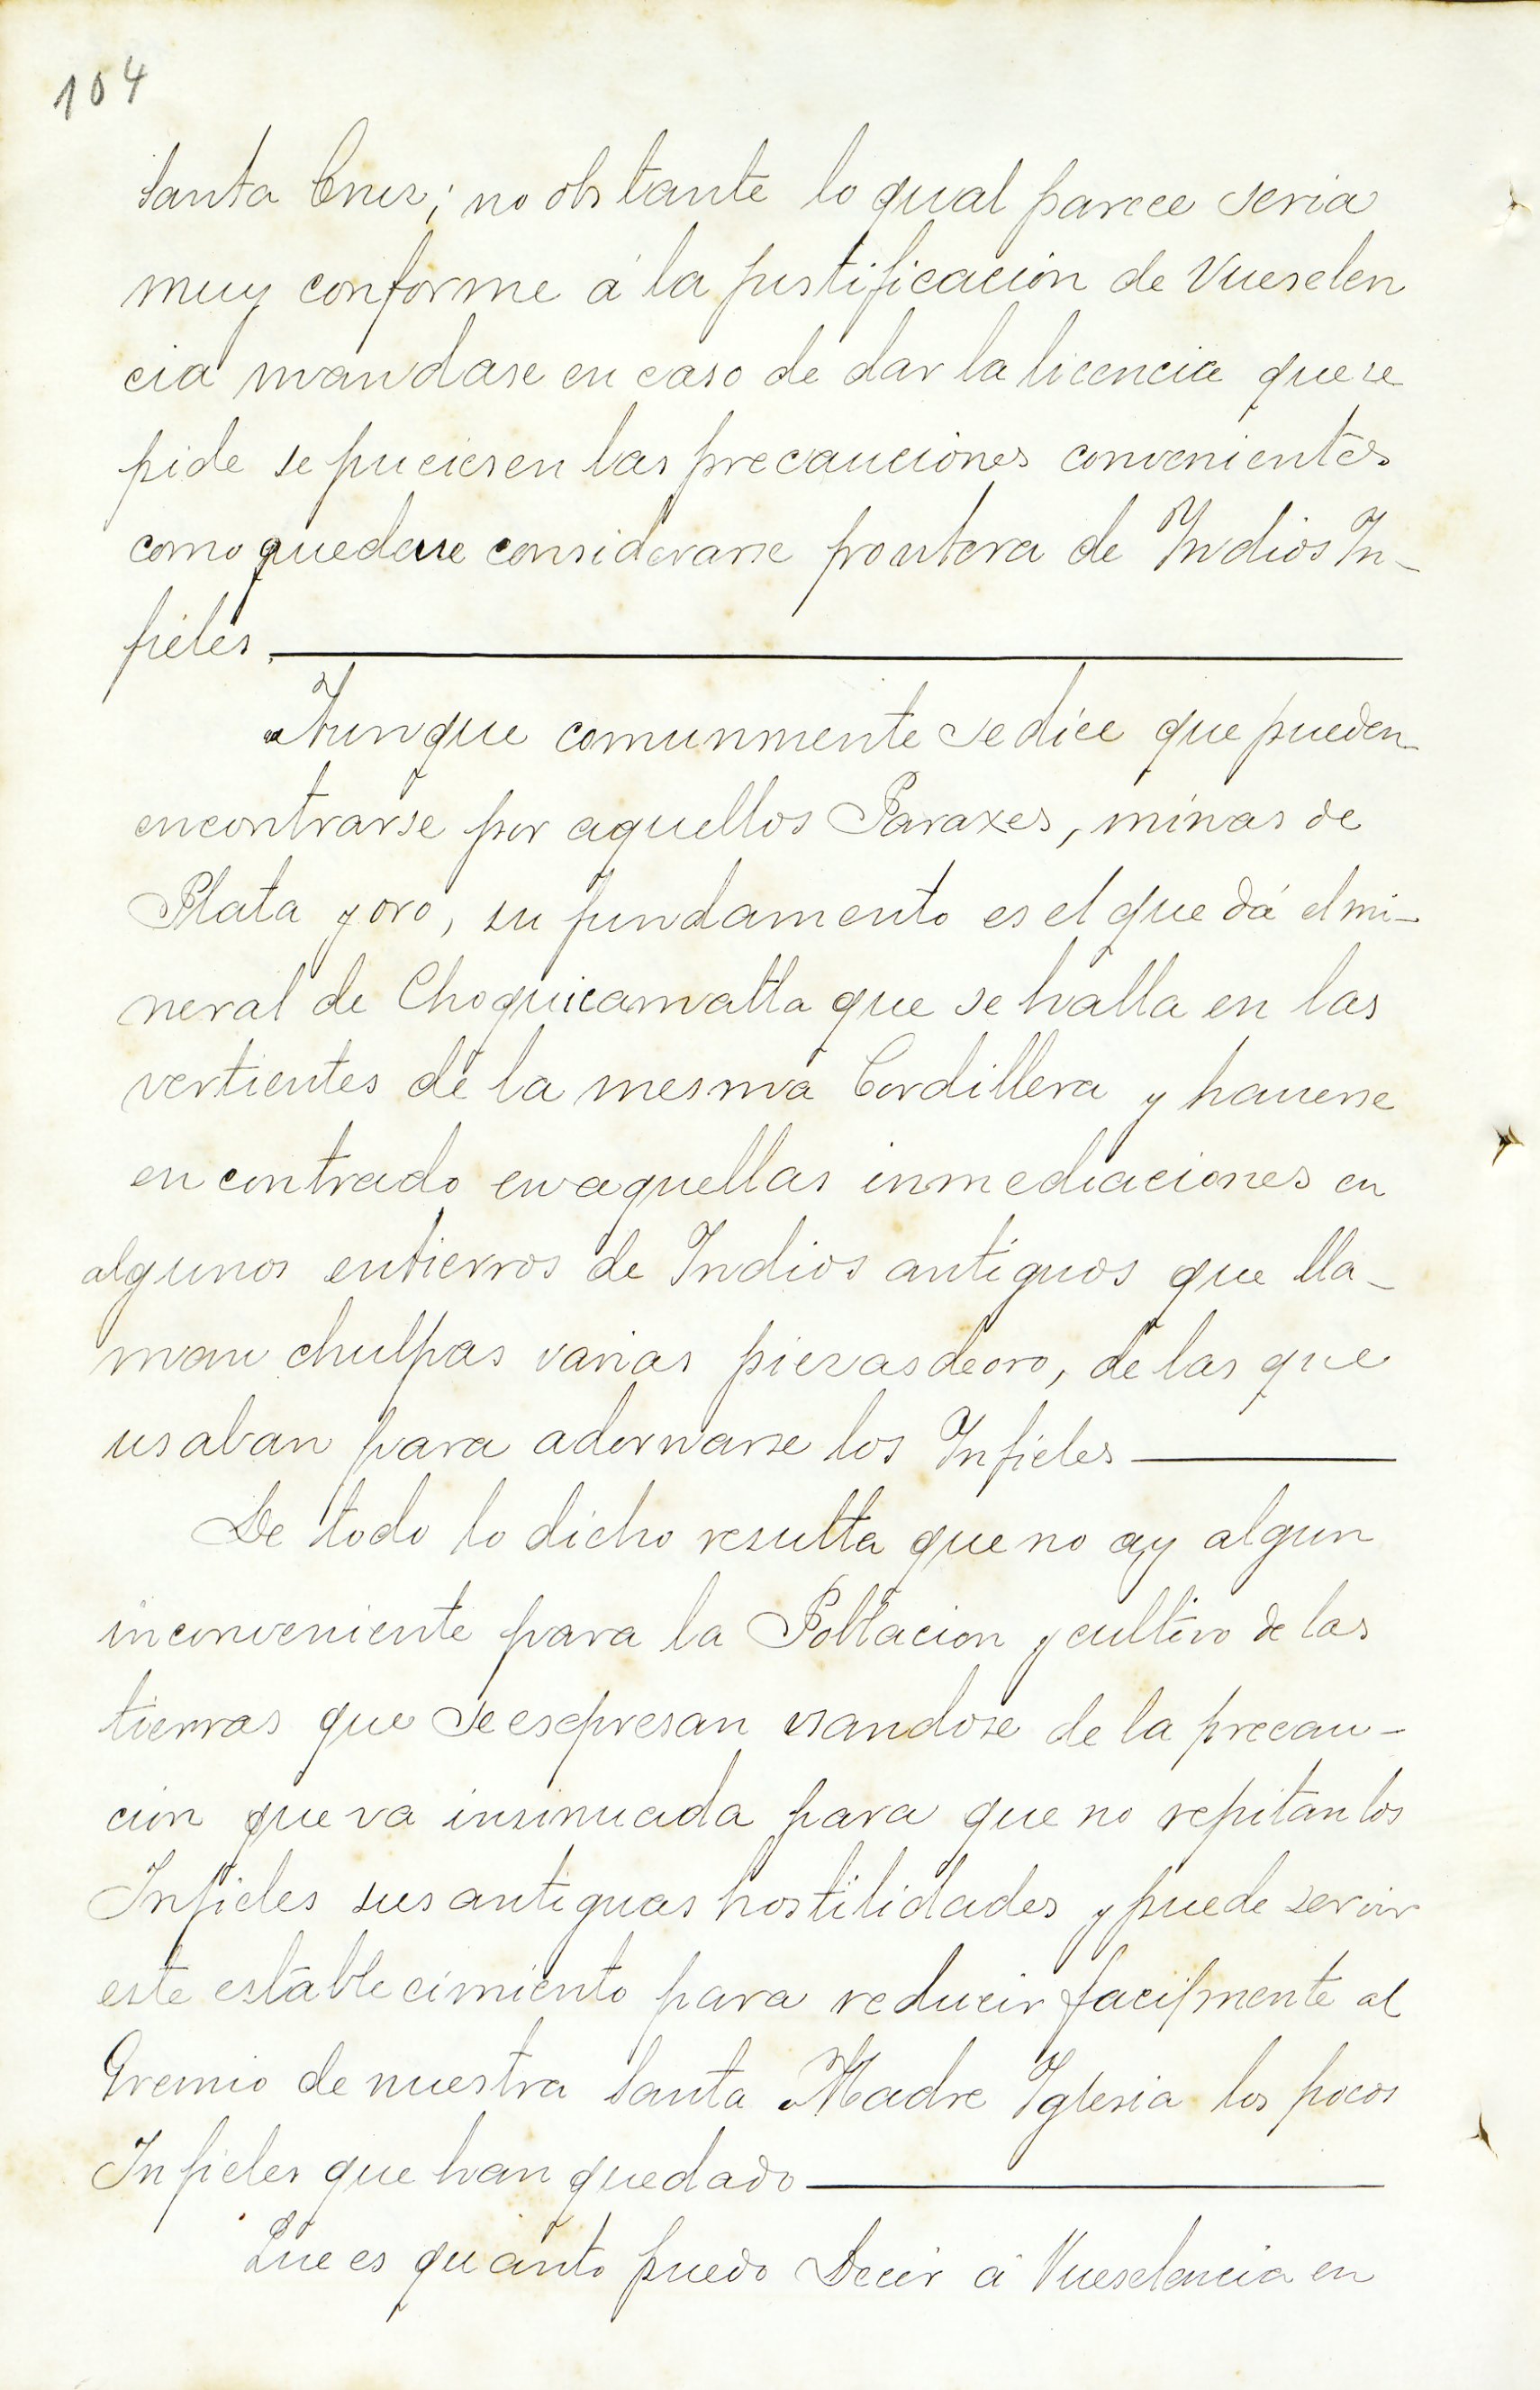 104
Santa Cruz; no obstante lo qual parece seria
muy conforme á la justificacion de Vueselen
cia mandase en caso de dar la licencia que se
pide se puciesen las precauciones convenientes
como quedese considerarse frontera de Indios In-
fieles.
Aunque comunmente se dice que pueden
encontrarse por aquellos Paraxes, minas de
Plata y oro, su fundamento es el que dá el mi-
neral de Choquicamatta que se halla en las
vertientes de la mesma Cordillera y hauerse
encontrado en aquellas inmediaciones en
algunos entierros de Indios antiguos que lla-
man chulpas varias piezas de oro, de las que
usaban para adornarse los Infieles
De todo lo dicho resulta que no ay algun
inconveniente para la Poblacion y cultivo de las
tierras que se esepresan usandose de la precau-
cion que va insinuada para que no repitan los
Infieles sus antiguas hostilidades y puede servir
este establecimiento para reducir facilmente al
Gremio de nuestra Santa Madre Iglesia los pocos
Infieles que han quedado
Que es quanto puedo Decir á Vueselencia en